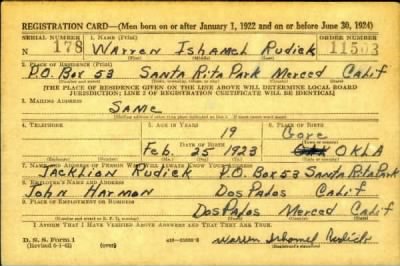 REGISTRATION CARD—(Men born on or after January 1, 1922 and on or before June 30, 1924)
SERIAL NUMBER 1. NAME (Print) ORDER NUMBER
N 178 Warren Ishamel Rudick 11503
(First) (Middle) (Last)
2. PLACE OF RESIDENCE (Print)
P.O. Box 53 Santa Rita Park Merced Calif
[THE PLACE OF RESIDENCE GIVEN ON THE LINE ABOVE WILL DETERMINE LOCAL BOARD
JURISDICTION; LINE 2 OF REGISTRATION CERTIFICATE WILL BE IDENTICAL]
3. MAILING ADDRESS
Same
4. TELEPHONE 5. AGE IN YEARS 6. PLACE OF BIRTH
19 Gore
DATE OF BIRTH
Feb. 25 1923 OKLA
(Exchange) (Number) (Mo.) (Day) (Yr.) (State or country)
7. NAME AND ADDRESS OF PERSON WHO WILL ALWAYS KNOW YOUR ADDRESS
Rudick P.O. Box 53 Santa Rita Park
8. EMPLOYER'S NAME AND ADDRESS
John Harmon Dos Palos Calif
9. PLACE OF EMPLOYMENT OR BUSINESS
Dos Palos Merced Calif
I AFFIRM THAT I HAVE VERIFIED ABOVE ANSWERS AND THAT THEY ARE TRUE.
D. S. S. Form 1
(Revised 6-1-42) (over) Warren Ishamel Rudick